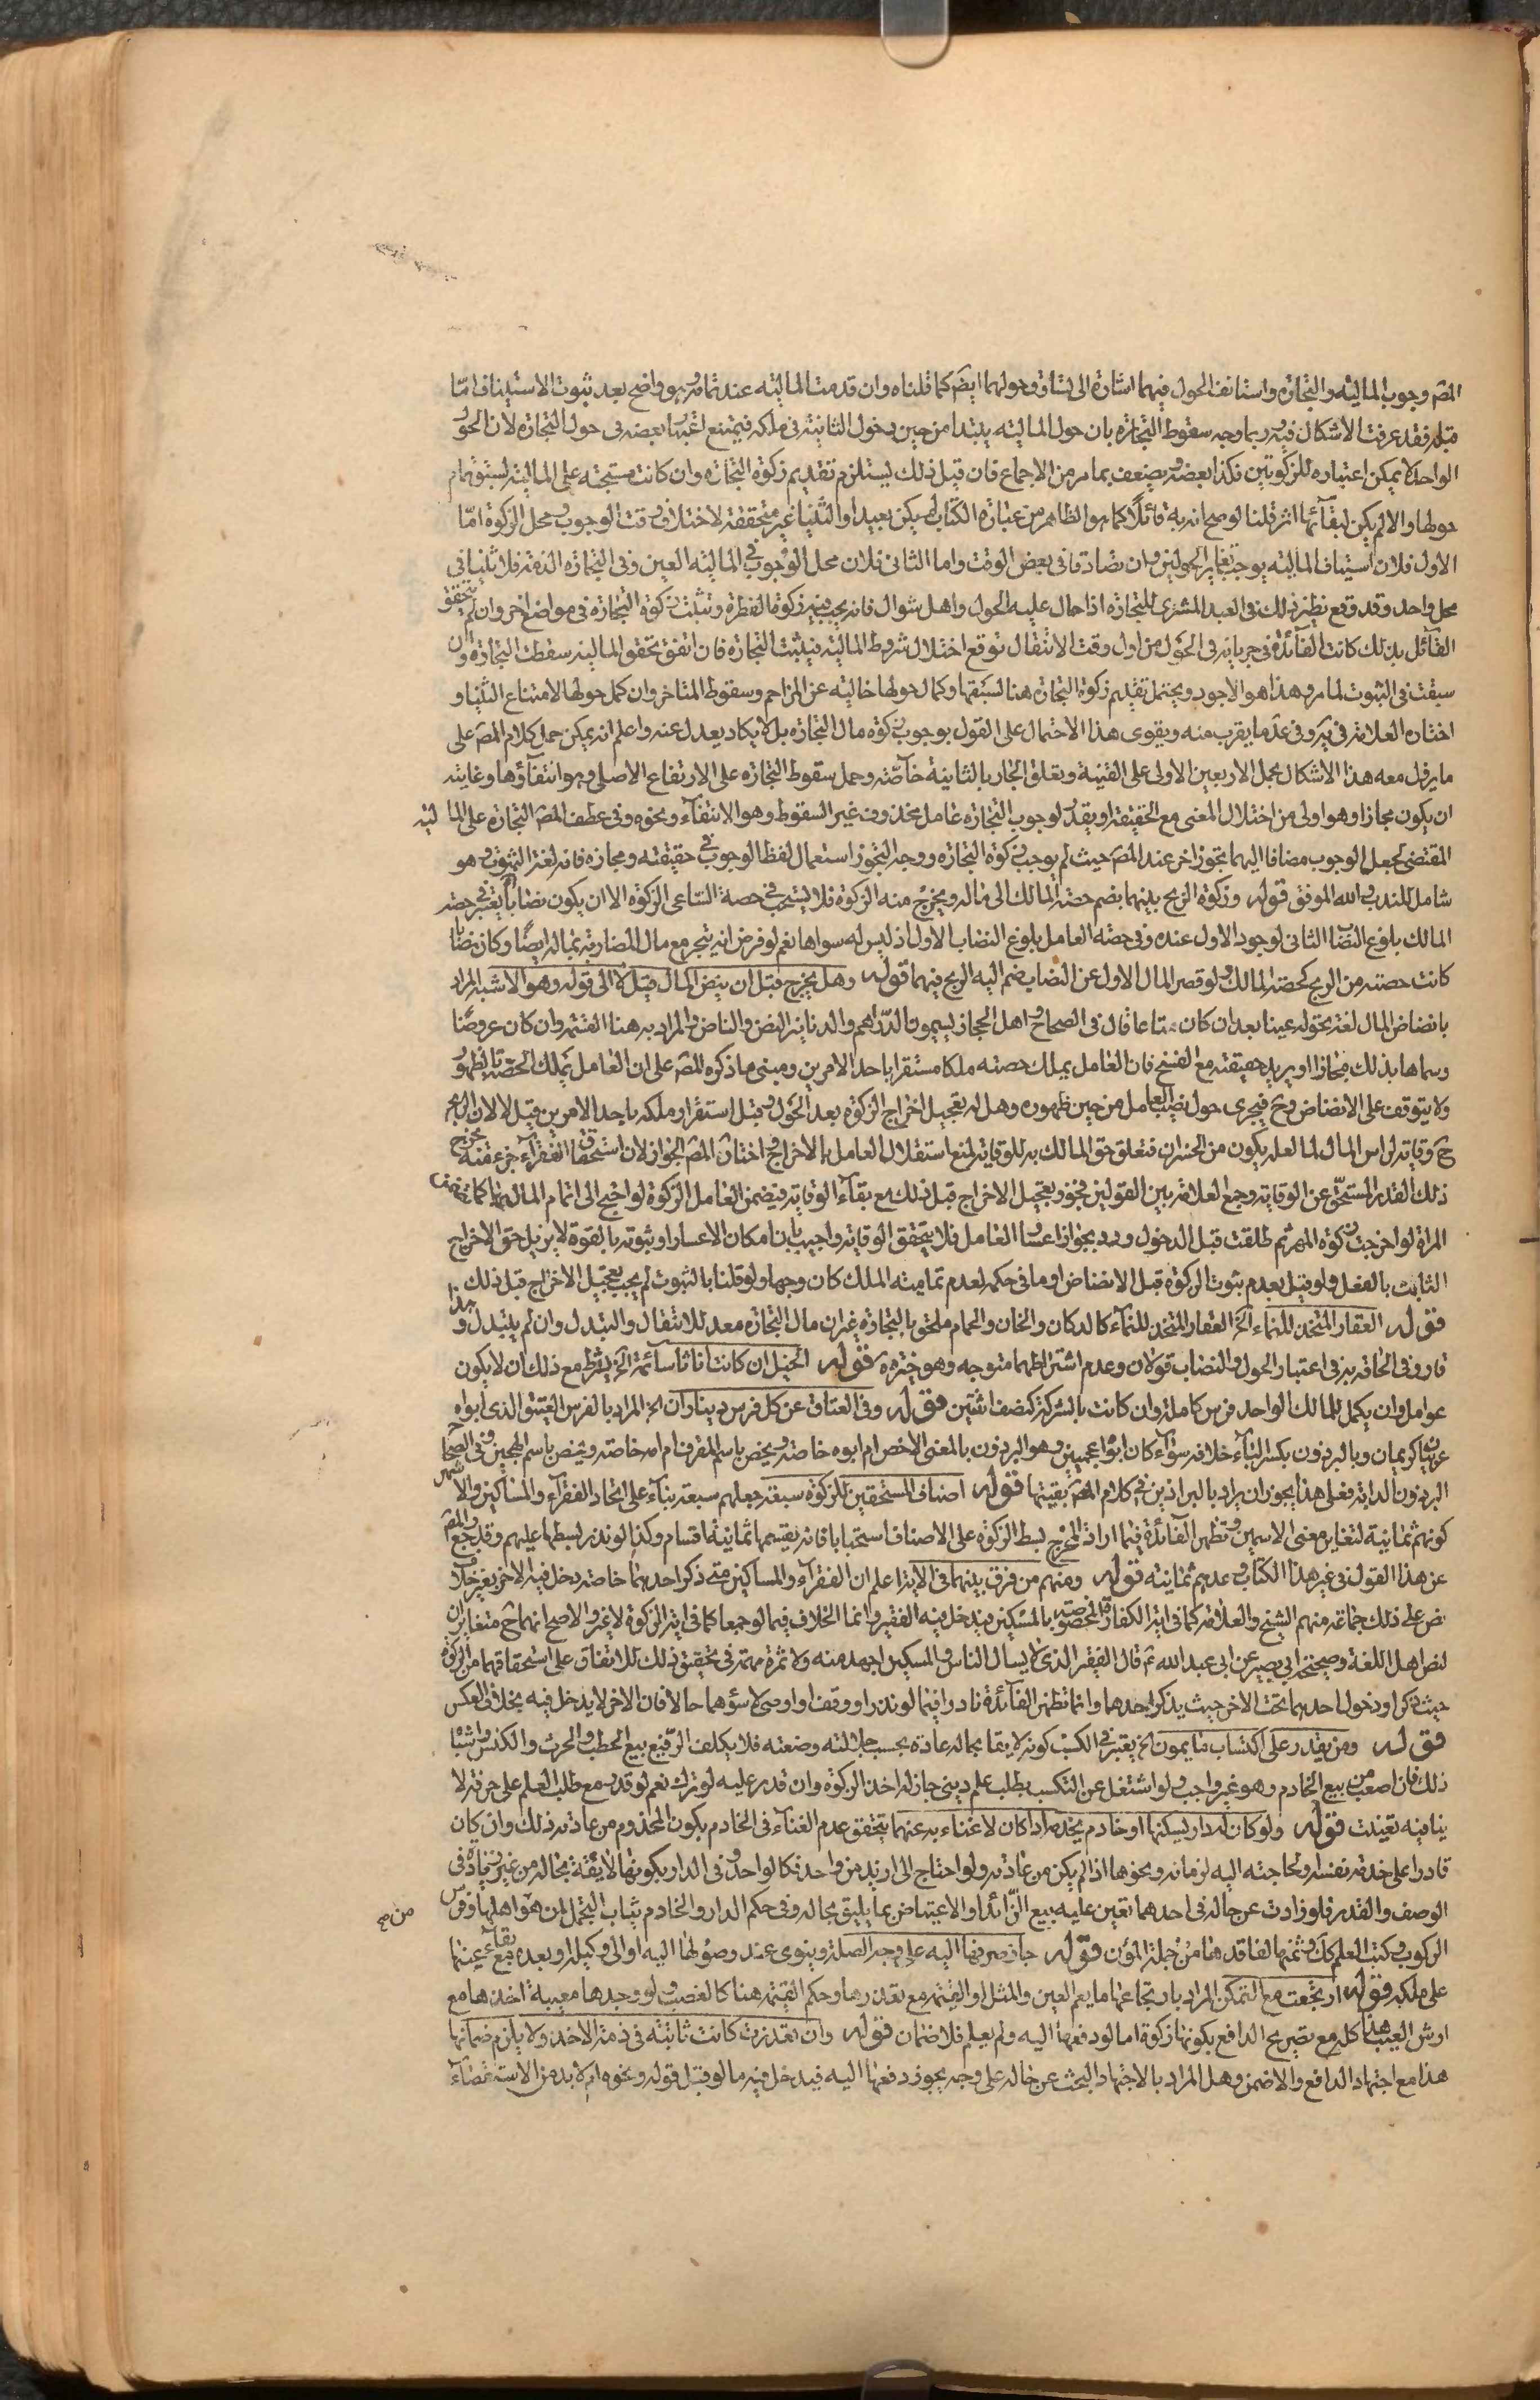 المص وجوب المالية والتجارة واستانف الحول فيهما اشارة الى تساوق حولهما ايضا كما قلناه وان قدمت المالية عند تمامه وهو واضح بعد ثبوت الاستيناف اما
قبله فقد عرفت الاشكال فيه وربما وجه سقوط التجارة بان حول المالية يبتدا من حين دخول الثانية في ملكه فيمتنع اعتبار بعضه في حول التجارة لان الحول
الواحد لا يمكن اعتباره للزكوتين فكذا بعضه ويضعف بما مر من الاجماع فان قيل ذلك يستلزم تقديم زكوة التجارة وان كانت مستحبة على المالية لسبق تمام
حولها والا لم يكن لبقائها اثر قلنا لو صح انه به قائلا كما هو الظاهر من عبارة الكتاب لم يكن بعيدا والثنيا غير متحققة لاختلاف وقت الوجوب ومحل الزكوة اما
الاول فلان استيناف المالية يوجب تغاير الحولين وان تصادقا في بعض الوقت واما الثاني فلان محل الوجوب في المالية العين وفي التجارة القيمة فلا ثنيا في
محل واحد وقد وقع نظير ذلك في العبد المشترى للتجارة اذا حال عليه الحول واهل شوال فانه يجب فيه زكوة الفطرة وتثبت زكوة التجارة في مواضع اخر وان لم يتحقق
القائل بذلك كانت الفائدة في جريانه في الحول من اول وقت الانتقال توقع اختلال شروط المالية فيثبت التجارة فان اتفق تحقق المالية سقطت التجارة وان
سبقت في الثبوت لما مر وهذا هو الاجود ويحتمل تقديم زكوة التجارة هنا لسبقها وكمال حولها خالية عن المزاحم وسقوط المتاخر وان كمل حولها لامتناع الثنيا و
اختاره العلامة في ير وفي عد ما يقرب منه ويقوى هذا الاحتمال على القول بوجوب زكوة مال التجارة بل لا يكاد يعدل عنه واعلم انه يمكن حمل كلام المص على
ما يزول معه هذا الاشكال بحمل الاربعين الاولى على القنية وتعلق التجار بالثانية خاصة وحمل سقوط التجارة على الارتفاع الاصلي وهو انتفاؤها وغايته
ان يكون مجازا وهو اولى من اختلال المعنى مع الحقيقة او يقدر لوجوب التجارة عامل محذوف غير السقوط وهو الانتفاء ونحوه وفي عطف المص التجارة على المالية
المقتضي لجعل الوجوب مضافا اليهما تجوز اخر عند المص حيث لم يوجب زكوة التجارة ووجه التجوز استعمال لفظ الوجوب في حقيقته ومجازه فانه لغة الثبوت وهو
شامل للندب والله الموفق قوله وزكوة الربح بينهما يضم حصة المالك الى ماله ويخرج منه الزكوة فلا يستحب في حصة الساعي الزكوة الا ان يكون نصابا يعتبر في حصة
المالك بلوغ النصاب الثاني لوجود الاول عنده وفي حصة العامل بلوغ النصاب الاول اذ ليس له سواها نعم لو فرض انه يتجر مع مال المضاربة بماله ايضا وكان نصابا
كانت حصته من الربح كحصة المالك ولو قصر المال الاول عن النصاب ضم اليه الربح فيهما قوله وهل يخرج قبل ان ينض المال قيل لا الى قوله وهو الاشبه المراد
بانضاض المال لغة تحوله عينا بعد ان كان متاعا قال في الصحاح واهل الحجاز يسمون الدراهم والدنانير النض والناض والمراد به هنا القسمة وان كان عروضا
وسماها بذلك مجازا او يريد حقيقته مع الفسخ فان العامل يملك حصته ملكا مستقرا باحد الامرين ومبنى ما ذكره المص على ان العامل يملك الحصة بالظهور
ولا يتوقف على الانضاض وح فيجري حول نصيب العامل من حين ظهوره وهل له تعجيل اخراج الزكوة بعد الحول وقبل استقرار ملكه باحد الامرين قيل لا لان الربح
ح وقاية لراس المال لما لعله يكون من الخسران فتعلق حق المالك به للوقاية لمنع استقلال العامل بالاخراج واختار المص الجواز لان استحقاق الفقراء جزء منه يخرج
ذلك القدر المستحق عن الوقاية وجمع العلامة بين القولين فجوز تعجيل الاخراج قبل ذلك مع بقاء الوقاية فيضمن العامل الزكوة لو احتيج الى اتمام المال بها كما تضمن
المراة لو اخرجت زكوة المهر ثم طلقت قبل الدخول ورد بجواز اعسار العامل فلا يتحقق الوقاية واجيب بان امكان الاعسار او ثبوته بالقوة لا يزيل حق الاخراج
الثابت بالفعل ولو قيل بعدم ثبوت الزكوة قبل الانضاض او ما في حكمه لعدم تمامية الملك كان وجها ولو قلنا بالثبوت لم يجب تعجيل الاخراج قبل ذلك
قوله العقار المتخذ للنماء الخ العقار المتخذ للنماء كالدكان والخان والحمام ملحق بالتجارة غير ان مال التجارة معد للانتقال والتبدل وان لم يتبدل وهذا
قار وفي الحاقه به في اعتبار الحول والنصاب قولان وعدم اشتراطهما متوجه وهو خيرة ه قوله الخيل ان كانت اناثا سائمة الخ يشترط مع ذلك ان لا يكون
عوامل وان يكمل للمالك الواحد فرس كاملة وان كانت بالشركة كنصف اثنين قوله وفي العتاق عن كل فرس ديناران الخ المراد بالفرس العتيق الذي ابواه
عربيان كريمان وبالبرذون بكسر الباء خلافه سواء كان ابواه اعجميين وهو البرذون بالمعنى الاخص ام ابوه خاصة ويخص باسم المقرف ام امه خاصة ويخص باسم الهجين وفي الصحاح
البرذون الدابة فعلى هذا يجوز ان يراد بالبراذين في كلام المص بقيتها قوله اصناف المستحقين للزكوة سبعة جعلهم سبعة بناء على اتحاد الفقراء والمساكين والاشهر
كونهم ثمانية لتغاير معنى الاسمين وتظهر الفائدة فيما اراد المخرج بسط الزكوة على الاصناف استحبابا فانه يقسمها ثمانية اقسام وكذا لو نذر بسطها عليهم وقد رجع المص
عن هذا القول في غير هذا الكتاب وعدهم ثمانية قوله ومنهم من فرق بينهما في الاية اعلم ان الفقراء والمساكين متى ذكر احدهما خاصة دخل فيه الاخر بغير خلاف
نص على ذلك جماعة منهم الشيخ والعلامة كما في اية الكفارة المخصوصة بالمسكين فيدخل فيه الفقير وانما الخلاف فيما لو جمعا كما في اية الزكوة لا غير والاصح انهما ح متغايران
لنص اهل اللغة وصحيحة ابي بصير عن ابي عبد الله ع قال الفقير الذي لا يسال الناس والمسكين اجهد منه ولا ثمرة مهمة في تحقيق ذلك للاتفاق على استحقاقهما من الزكوة
حيث ذكرا ودخول احدهما تحت الاخر حيث يذكر احدهما وانما تظهر الفائدة نادرا فيما لو نذر او وقف او اوصى لاسوئهما حالا فان الاخر لا يدخل فيه بخلاف العكس
قوله ومن يقدر على اكتساب ما يمون الخ يعتبر في الكسب كونه لايقا بحاله عادة بحسب جلالته وضعته فلا يكلف الرفيع بيع الحطب والحرث والكنس واشباه
ذلك فان اصعب من بيع الخادم وهو غير واجب ولو اشتغل عن التكسب بطلب علم ديني جاز له اخذ الزكوة وان قدر عليه لو ترك نعم لو قدر مع طلب العلم على حرفة لا
ينافيه تعينت قوله ولو كان له دار يسكنها او خادم يخدمه اذا كان لا غناء به عنهما يتحقق عدم الغناء في الخادم بكون المخدوم من عادته ذلك وان كان
قادرا على خدمة نفسه او لحاجته اليه لزمانة ونحوها اذا لم يكن من عادته ولو احتاج الى ازيد من واحد فكالواحد وفي الدار بكونها لائقة بحاله من غير زيادة في
الوصف والقدر فلو زادت عن حاله في احدهما تعين عليه بيع الزائد او الاعتياض بما يليق بحاله وفي حكم الدار والخادم ثياب التجمل لمن هو اهلها وفرس
الركوب وكتب العلم كك وثمنها لفاقدها من جملة المؤن قوله جاز صرفها اليه على وجه الصلة وينوى عند وصولها اليه او الى وكيله او بعده مع بقاء عينها
من صح
على ملكه قوله ارتجعت مع التمكن المراد بارتجاعها ما يعم العين والمثل او القيمة مع تعذرها وحكم القيمة هنا كالغصب ولو وجدها معيبة اخذها مع
ارش العيب هذا كله مع تصريح الدافع بكونها زكوة اما لو دفعها اليه ولم يعلم فلا ضمان قوله وان تعذرت كانت ثابتة في ذمة الاخذ ولا يلزم ضمانها
هذا مع اجتهاد الدافع والا ضمن وهل المراد بالاجتهاد البحث عن حاله على وجه يجوز دفعها اليه فيدخل فيه ما لو قبل قوله ونحوه ام لا بد من الاستقصاء